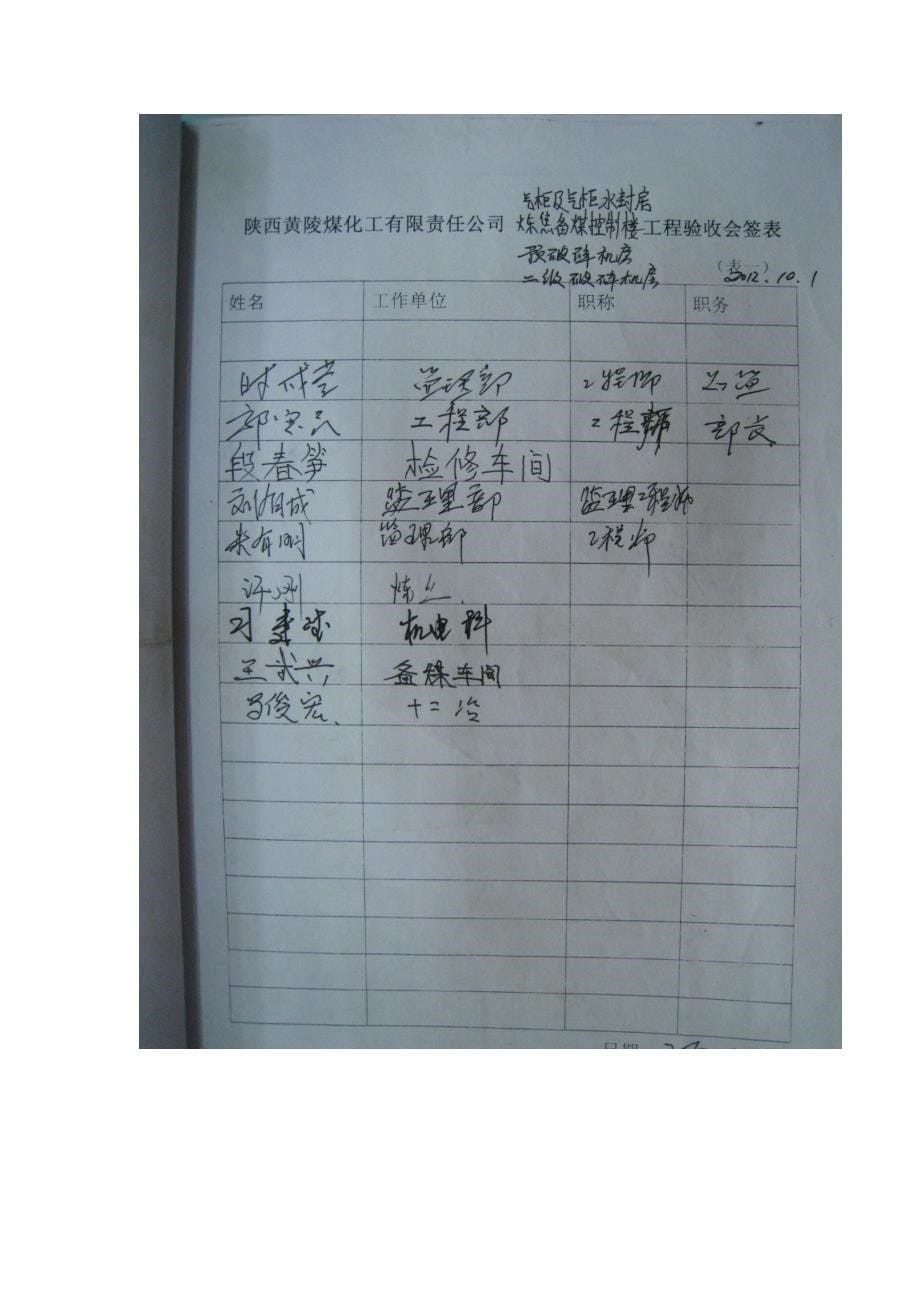 气柜及气柜水封房
陕西黄陵煤化工有限责任公司 炼焦备煤控制楼 工程验收会签表
预破碎机房 (表一)
二级破碎机房 2012.10.1
姓名 工作单位 职称 职务
时成 监理部 工程师 总监
郭 工程部 工程师 部长
段春笋 检修车间
刘 成 监理部 监理工程师
朱有明 监理部 工程师
许刚 炼
习 机电科
王武兴 备煤车间
马俊宏 十二冶
日期